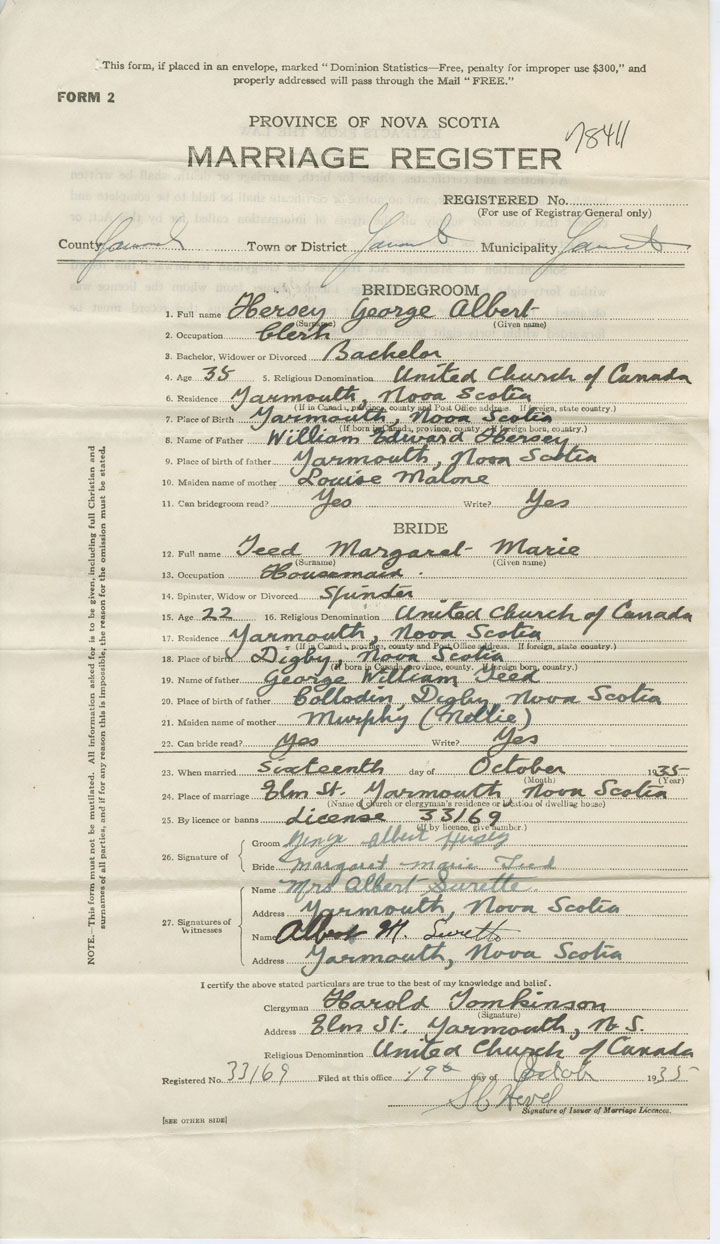 This form, if placed in an envelope, marked "Dominion Statistics—Free, penalty for improper use $300," and
properly addressed will pass through the Mail "FREE."
FORM 2
PROVINCE OF NOVA SCOTIA
78411
MARRIAGE REGISTER
REGISTERED No.
(For use of Registrar General only)
County Yarmouth Town or District Yarmouth Municipality Yarmouth
BRIDEGROOM
1. Full name Hersey George Albert
(Surname) (Given name)
2. Occupation Clerk
3. Bachelor, Widower or Divorced Bachelor
4. Age 35 5. Religious Denomination United Church of Canada
6. Residence Yarmouth, Nova Scotia
(If in Canada, province, county and Post Office address. If foreign, state country.)
7. Place of Birth Yarmouth, Nova Scotia
(If born in Canada, province, county. If foreign born, country.)
8. Name of Father William Edward Hersey
9. Place of birth of father Yarmouth, Nova Scotia
10. Maiden name of mother Louise Malone
11. Can bridegroom read? Yes Write? Yes
BRIDE
12. Full name Teed Margaret Marie
(Surname) (Given name)
13. Occupation Housemaid.
14. Spinster, Widow or Divorced Spinster
15. Age 22 16. Religious Denomination United Church of Canada
17. Residence Yarmouth, Nova Scotia
(If in Canada, province, county and Post Office address. If foreign, state country.)
18. Place of birth Digby, Nova Scotia
(If born in Canada, province, county. If foreign born, country.)
19. Name of father George William Teed
20. Place of birth of father Collodin, Digby, Nova Scotia
21. Maiden name of mother Murphy (Nellie)
22. Can bride read? Yes Write? Yes
23. When married Sixteenth day of October 1935
(Month) (Year)
24. Place of marriage Elm St. Yarmouth, Nova Scotia
(Name of church or clergyman's residence or location of dwelling house)
25. By licence or banns License 33169
(If by licence, give number.)
26. Signature of
Groom George Albert Hersey
Bride Margaret Marie Teed
27. Signatures of Witnesses
Name Mrs Albert Surette.
Address Yarmouth, Nova Scotia
Name Albert M. Surette
Address Yarmouth, Nova Scotia
I certify the above stated particulars are true to the best of my knowledge and belief.
Clergyman Harold Tomkinson
(Signature)
Address Elm St. Yarmouth, N.S.
Religious Denomination United Church of Canada
Registered No. 33169 Filed at this office 19th day of October 1935
Signature of Issuer of Marriage Licences.
[SEE OTHER SIDE]
NOTE.—This form must not be mutilated. All information asked for is to be given, including full Christian and
surnames of all parties, and if for any reason this is impossible, the reason for the omission must be stated.